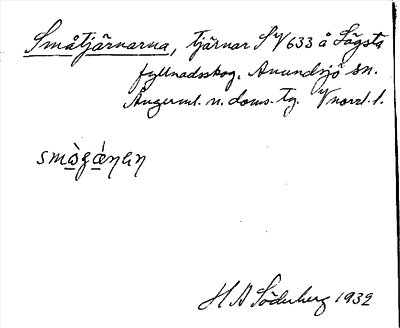 Småtjärnarna, tjärnar S V 633 å Sågsta
fyllnadsskog. Anundsjö sn.
Ångerml. n. doms. tg. V norrl. l.
H A Söderberg 1932